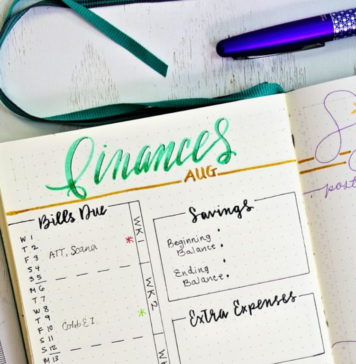 finances
AUG
Bills Due
W 1
T 2
F 3 ATT, Scana
S 4
S 5
M 6
T 7
W 8
T 9
F 10
S 11
S 12
M 13
WK 1
WK 2
Savings
Beginning
Balance
Ending
Balance
Extra Expenses